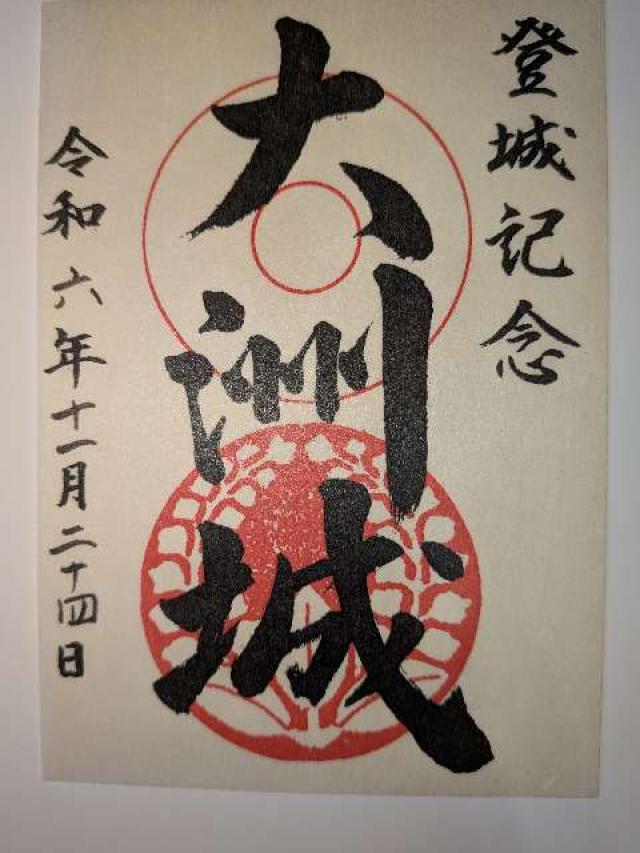 登城記念
大洲城
令和六年十一月二十四日